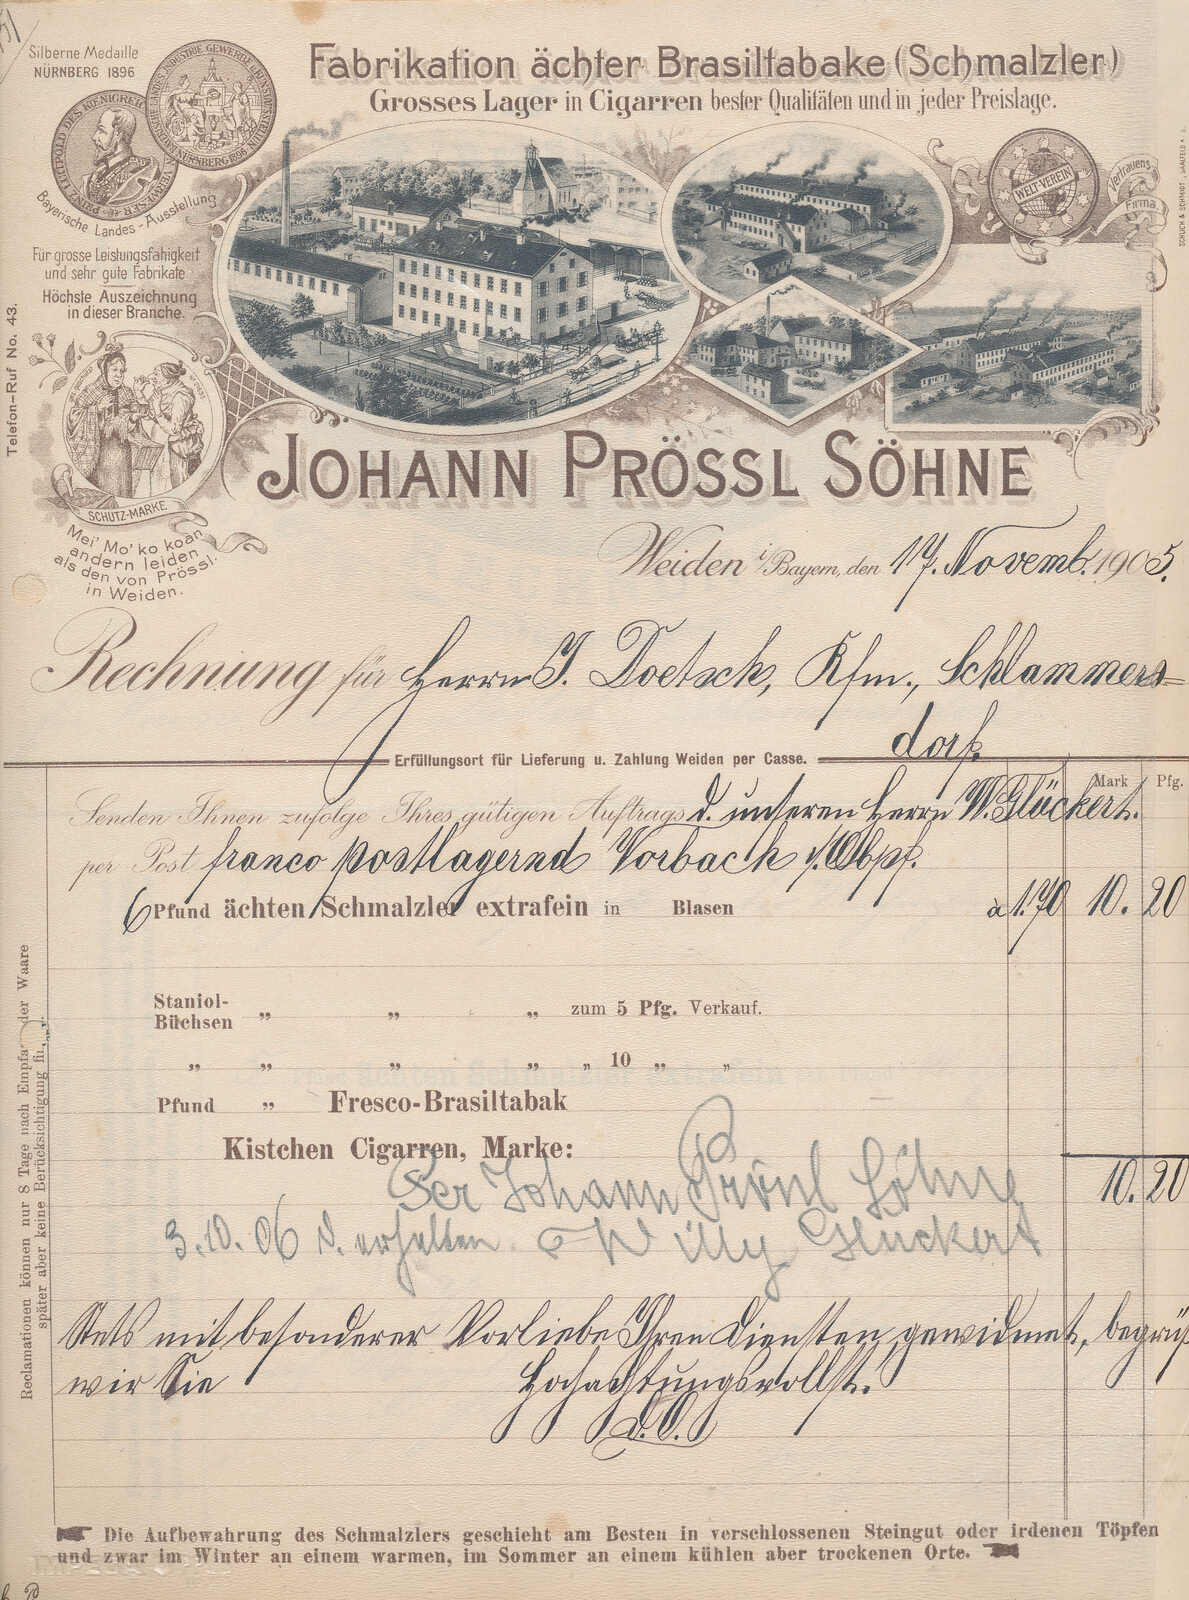 Silberne Medaille
NÜRNBERG 1896
PRINZ LUITPOLD DES KOENIGREICH BAYERN VERWESER
NÜRNBERG 1896
Bayerische Landes-Ausstellung
Für grosse Leistungsfähigkeit
und sehr gute Fabrikate
Höchste Auszeichnung
in dieser Branche.
Fabrikation ächter Brasiltabake (Schmalzler)
Grosses Lager in Cigarren bester Qualitäten und in jeder Preislage.
WELT-VEREIN
Vertrauens
Firma
Telefon-Ruf No. 43.
SCHUTZ-MARKE
Mei' Mo' ko koan
andern leiden
als den von Prössl.
in Weiden.
JOHANN PRÖSSL SÖHNE
Weiden i/Bayern, den 17. Novemb. 1905.
Rechnung für Herrn J. Doetsch, Kfm., Schlammers=
dorf.
Erfüllungsort für Lieferung u. Zahlung Weiden per Casse.
Mark Pfg.
Senden Ihnen zufolge Ihres gütigen Auftrags d. unseren Herrn W. Glückert.
per Post franco postlagernd Vorbach i/Obpf.
6 Pfund ächten Schmalzler extrafein in Blasen à 1.70 10. 20
Staniol-
Büchsen „ „ „ zum 5 Pfg. Verkauf.
„ „ „ „ „ 10 „ „
Pfund „ Fresco-Brasiltabak
Kistchen Cigarren, Marke:
10. 20
Per Johann Prössl Söhne
3.10.06 d. erhalten Willy Glückert
Stets mit besonderer Vorliebe Ihren Diensten gewidmet, begrüß
wir Sie Hochachtungsvollst.
D. O.
Reclamationen können nur 8 Tage nach Empfa der Waare
später aber keine Berücksichtigung fi
Die Aufbewahrung des Schmalzlers geschieht am Besten in verschlossenen Steingut oder irdenen Töpfen
und zwar im Winter an einem warmen, im Sommer an einem kühlen aber trockenen Orte.